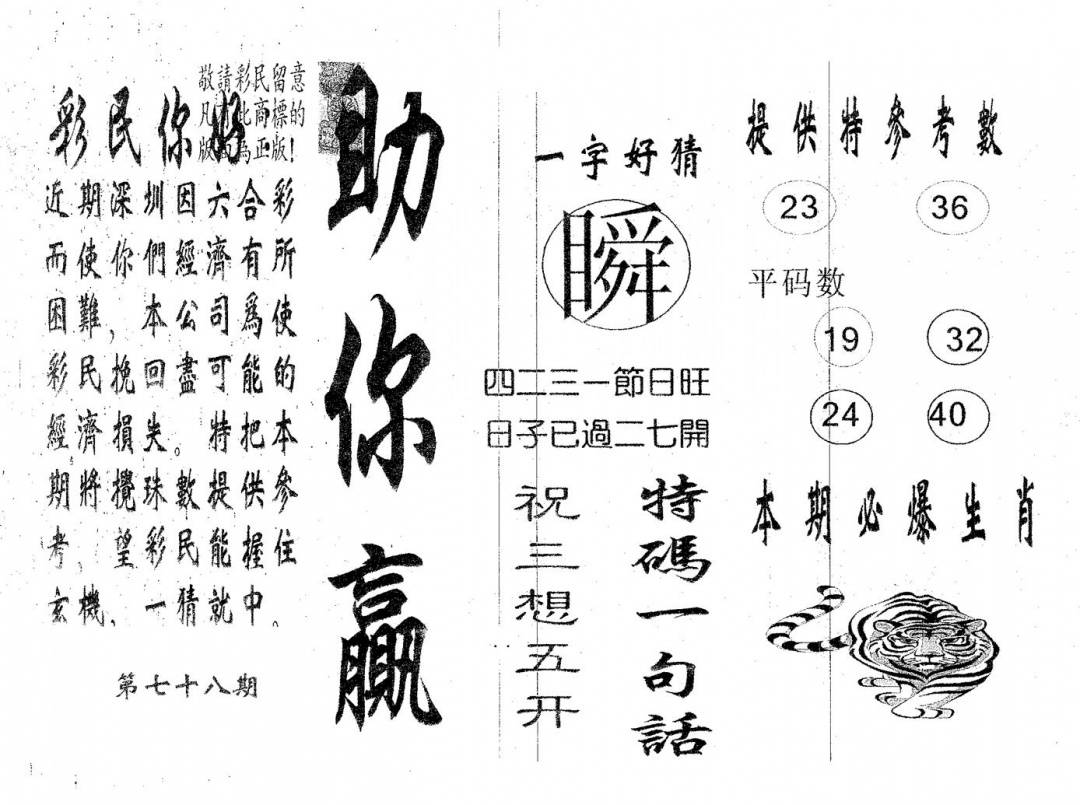 敬請彩民留意
凡 此商標的
版 為正版！
彩民你好
近期深圳因六合彩
而使你們經濟有所
困難，本公司爲使
彩民挽回盡可能的
經濟損失。特把本
期將攪珠數提供參
考，望彩民能握住
玄機，一猜就中。
第七十八期
助你贏
一字好猜
瞬
四二三一節日旺
日子已過二七開
特碼一句話
祝三想五开
提供特參考數
23 36
平码数
19 32
24 40
本期必爆生肖